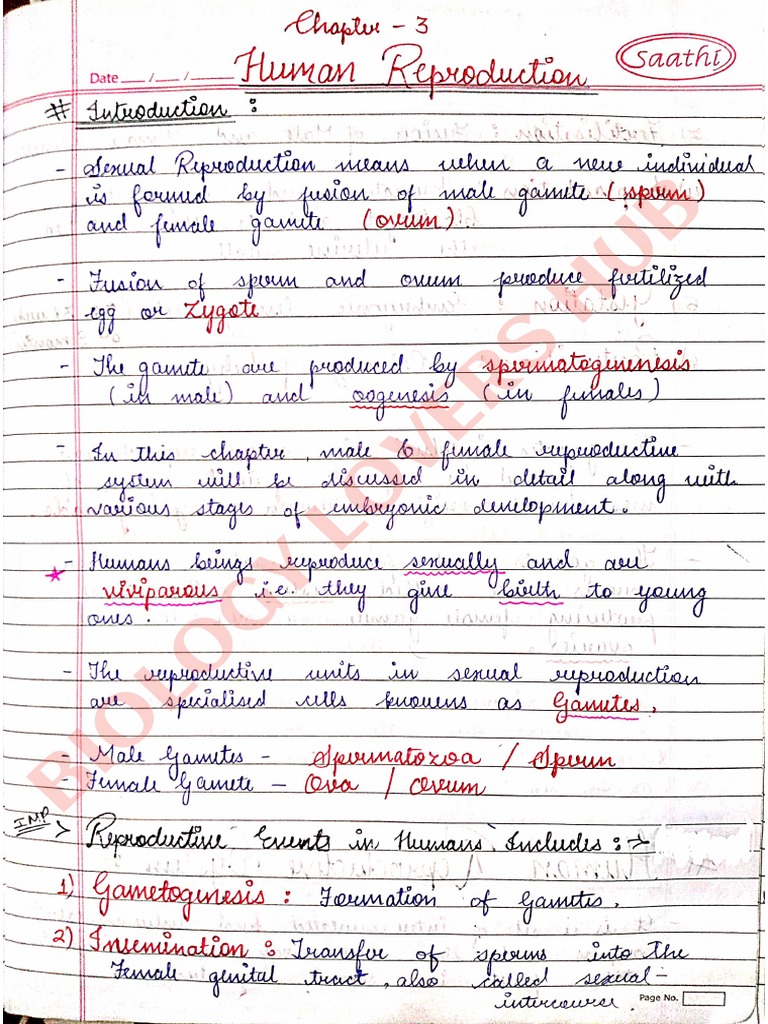 Chapter - 3
Saathi
Date __/__/____ Human Reproduction
# Introduction :
- Sexual Reproduction means when a new individual
is formed by fusion of male gamete (sperm)
and female gamete (ovum).
- Fusion of sperm and ovum produce fertilized
egg or Zygote
- The gamete are produced by spermatogenenesis
(in male) and oogenesis (in females)
- In this chapter, male & female reproductive
system will be discussed in detail along with
various stages of embryonic development.
- Humans beings reproduce sexually and are
viviparous i.e. they give birth to young
ones.
- The reproductive units in sexual reproduction
are specialised cells knowens as Gametes.
- Male Gametes - Spermatozoa / Sperm
- Female Gamete - Ova / Ovum
IMP > Reproductive Events in Humans Includes :->
1) Gametogenesis : Formation of Gametes.
2) Insemination : Transfer of sperms into the
Female genital tract, also called sexual-
intercourse.
Page No.
BIOLOGY LOVERS HUB